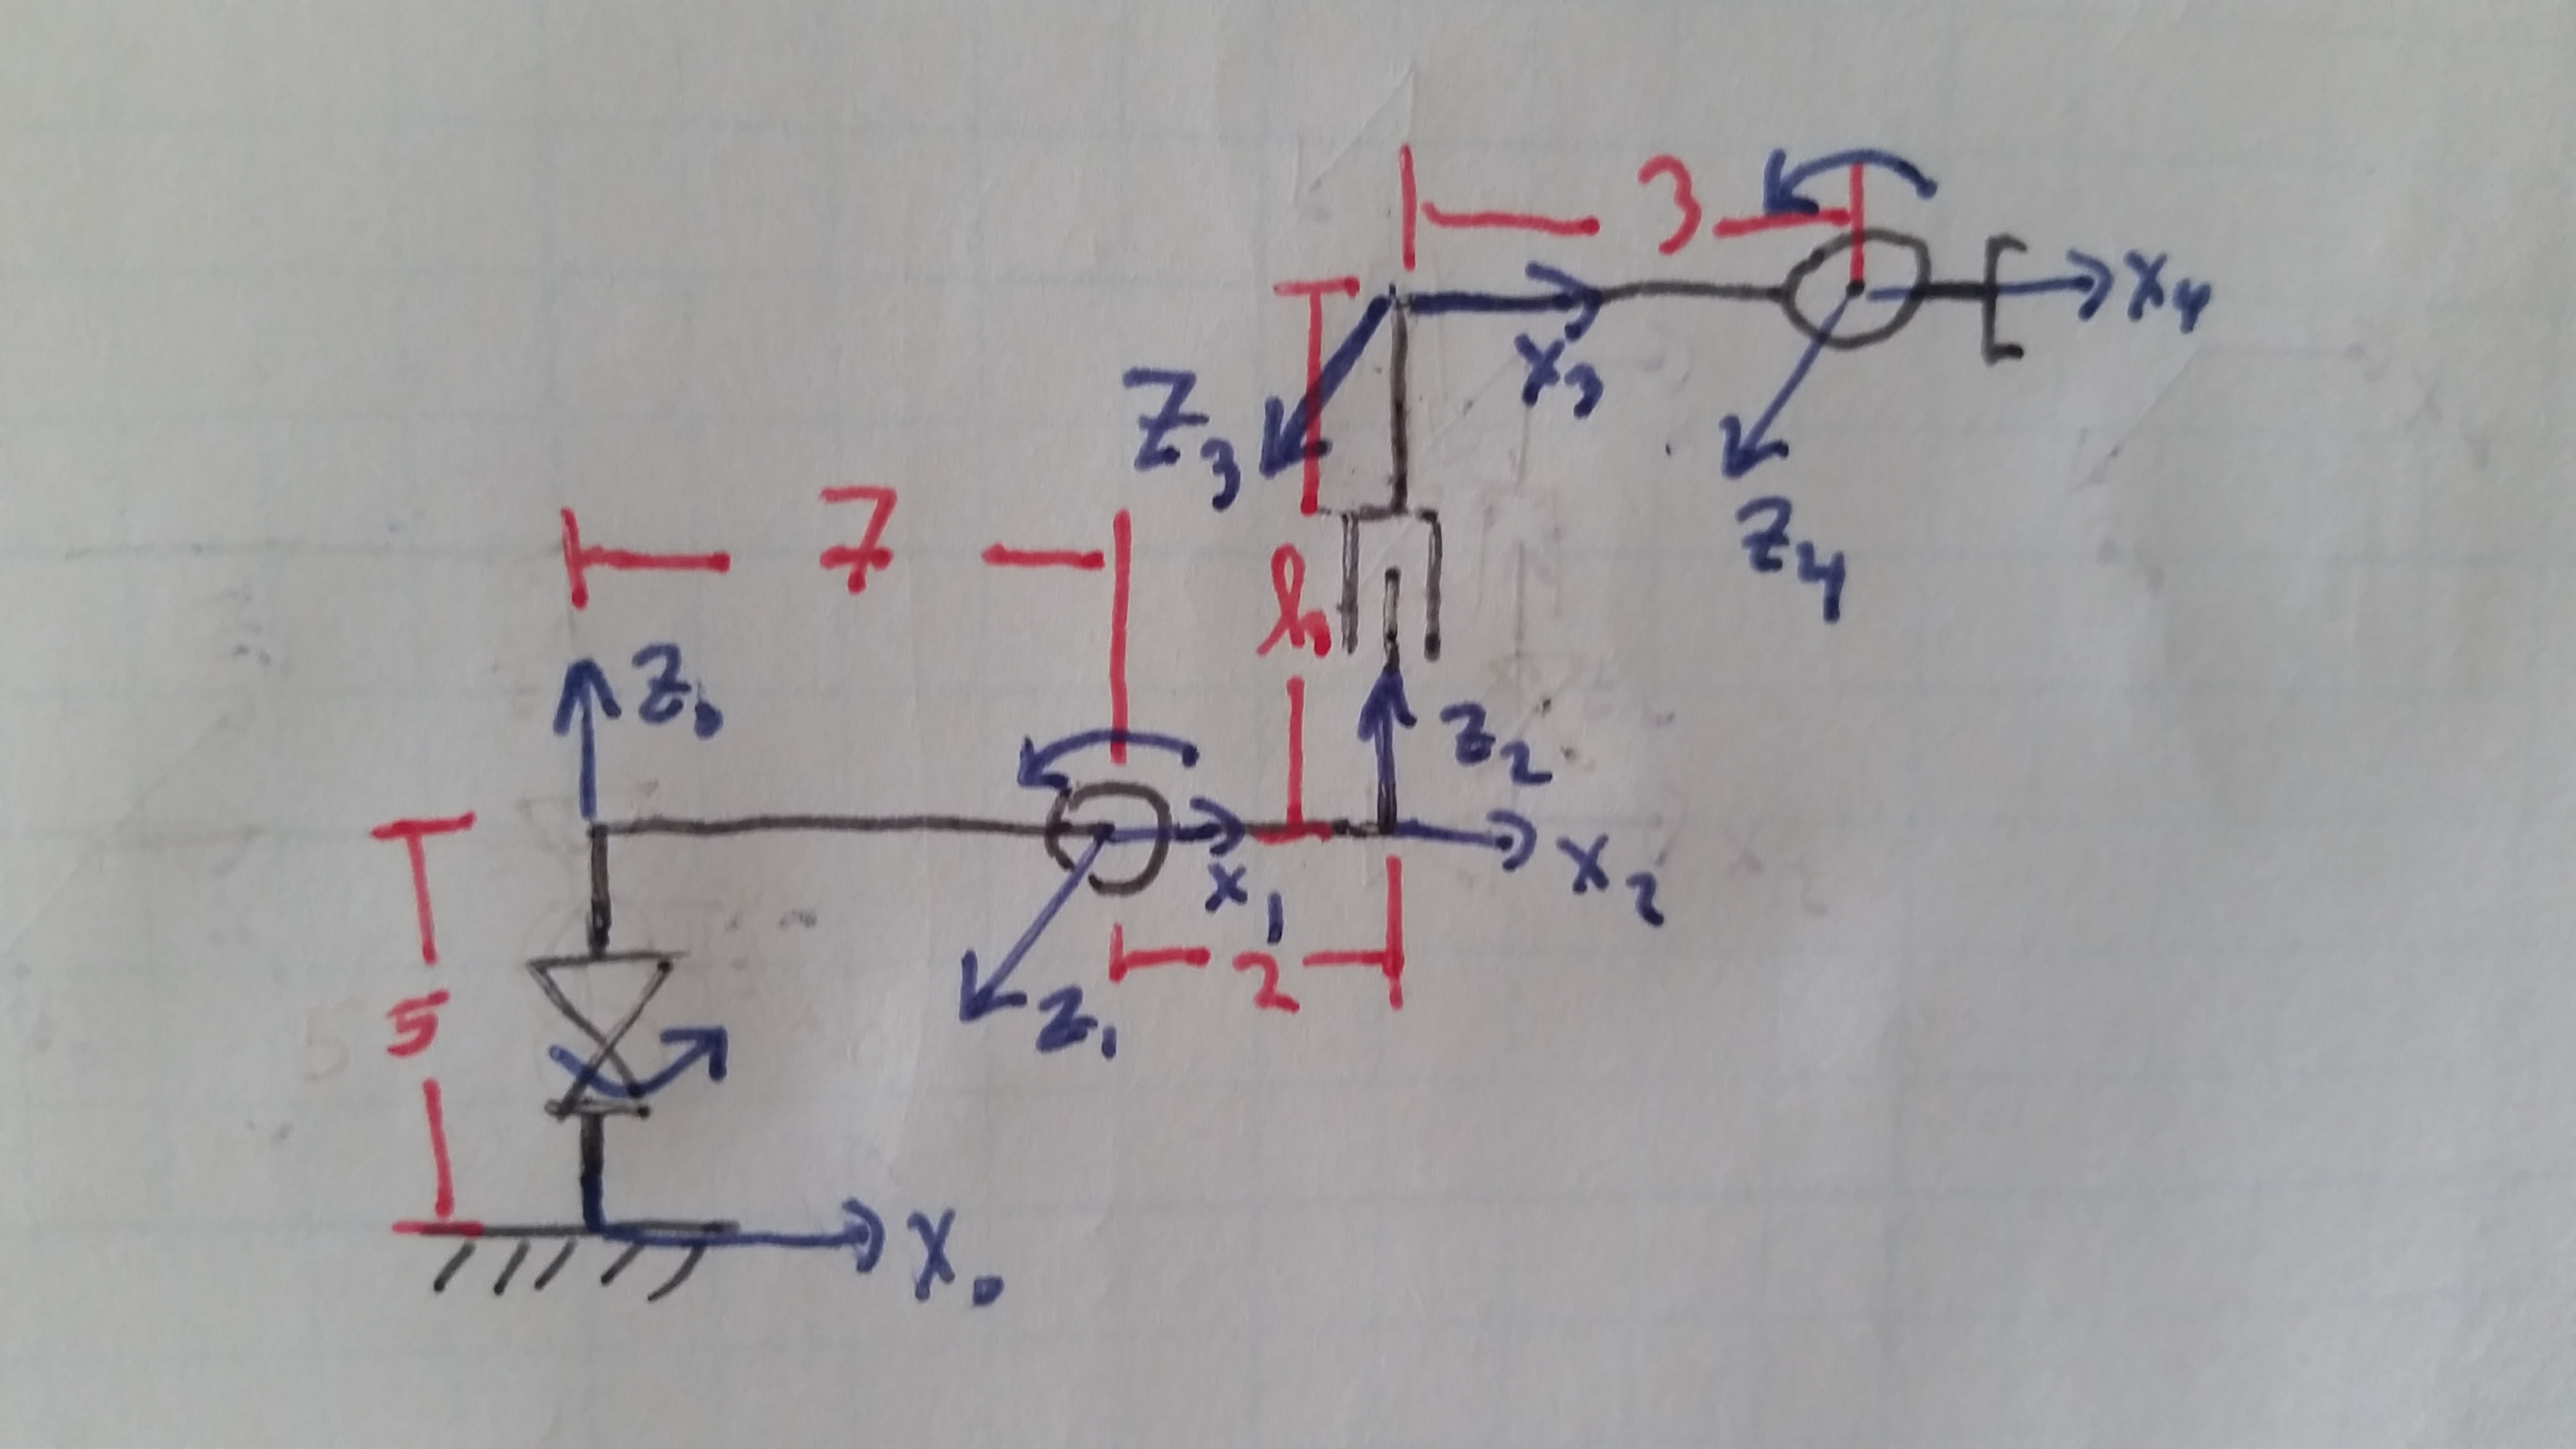 3
X₄
X₃
Z₃
7
Z₄
l₀
Z₀
Z₂
X₁
X₂
2
Z₁
5
X₀